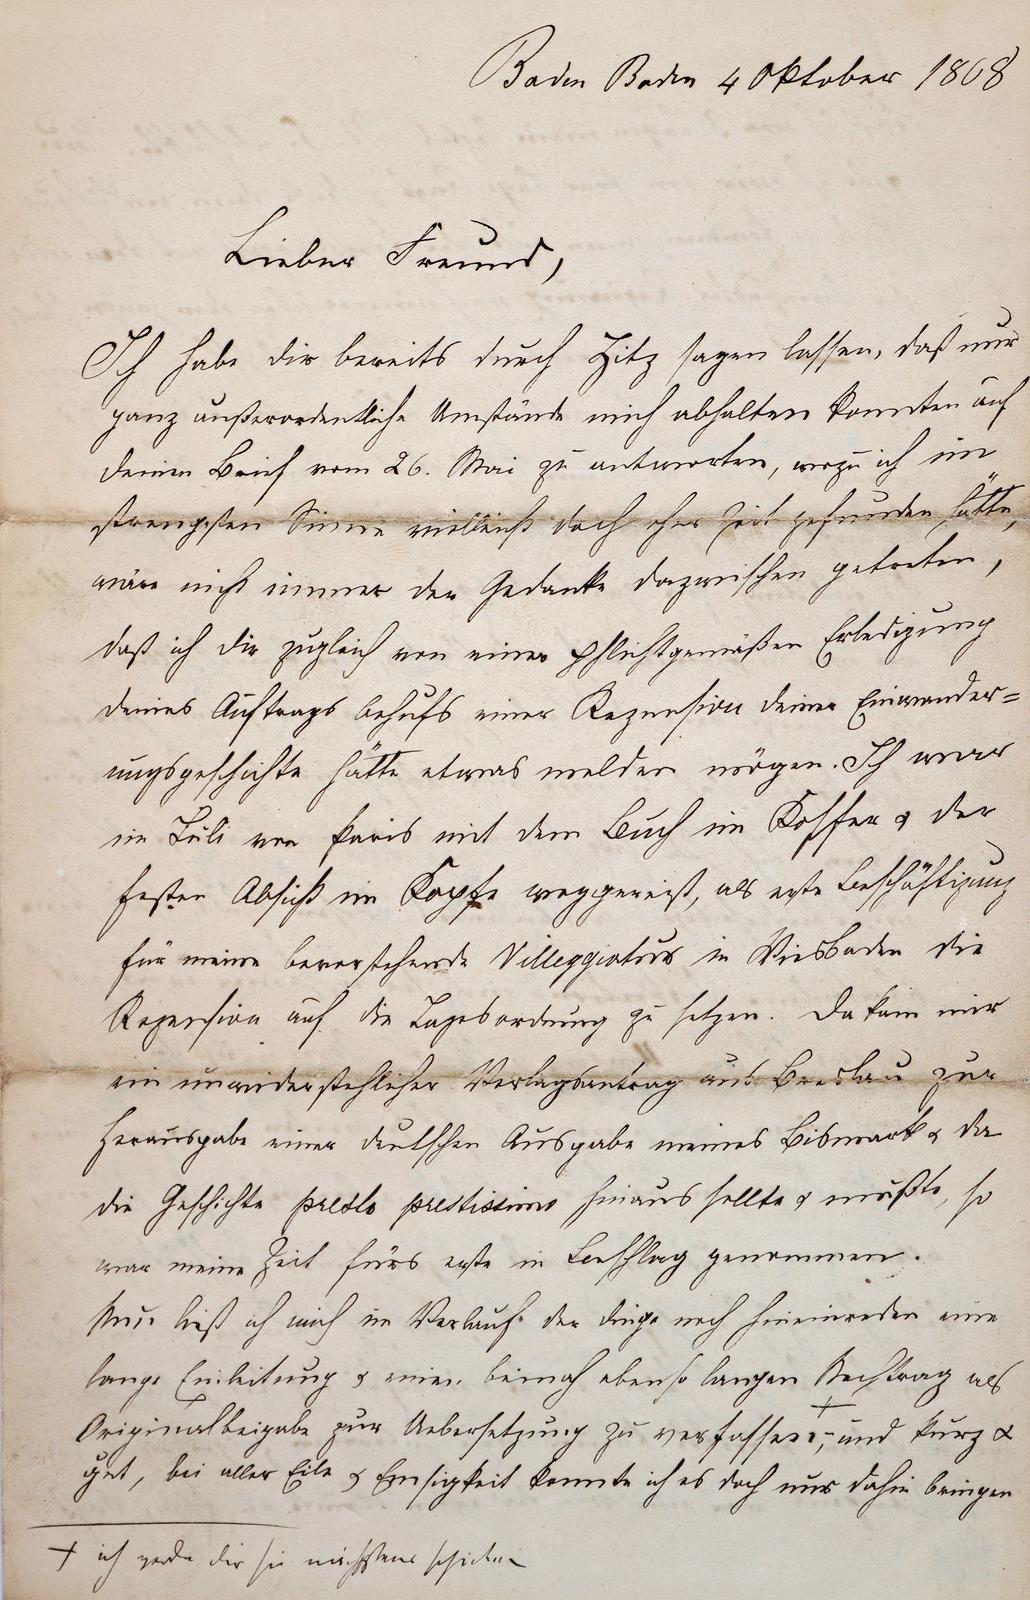 Baden Baden 4 Oktober 1868
Lieber Freund,
Ich habe dir bereits durch Hitz sagen lassen, daß nur
ganz außerordentliche Umstände mich abhalten konnten auf
deinen Brief vom 26. Mai zu antworten, wozu ich im
strengsten Sinne vielleicht doch eher Zeit gefunden hätte,
wäre nicht immer der Gedanke dazwischen getreten,
daß ich dir zugleich von einer pflichtgemäßen Erledigung
deines Auftrags behufs einer Rezension deiner Einwander=
ungsgeschichte hätte etwas melden mögen. Ich war
im Juli von Paris mit dem Buch im Koffer & der
festen Absicht im Kopfe weggereist, als erste Beschäftigung
für meine bevorstehende Villeggiatur in Wiesbaden die
Rezension auf die Tagesordnung zu setzen. Da kam mir
ein unwiderstehlicher Verlagsantrag aus Breslau zur
Herausgabe einer deutschen Ausgabe meines Bismark & da
die Geschichte presto prestissimo hinaus sollte & mußte, so
war meine Zeit fürs erste in Beschlag genommen.
Nun ließ ich mich im Verlauf der Dinge noch hineinreden eine
lange Einleitung & einen beinah ebenso langen Nachtrag als
Originalbeigabe zur Uebersetzung zu verfassen+, und kurz &
gut, bei aller Eile & Emsigkeit konnte ich es doch nur dahin bringen
+ ich werde dir sie nächstens schicken